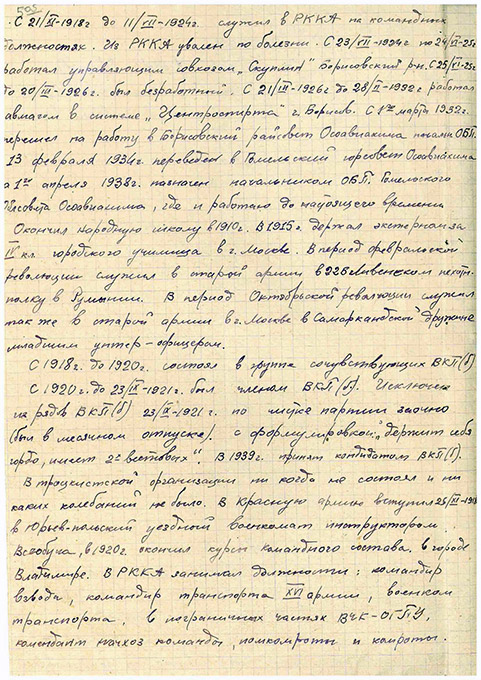 505
С 21/VI-1918г до 11/VII-1924г. служил в РККА на командных
должностях. Из РККА уволен по болезни. С 23/VII-1924г по 24/VI-25г
работал управляющим совхозом „Скуплин" Борисовский р-н. С 25/VI-25г
до 20/III-1926г. был безработный. С 21/III-1926г до 28/II-1932г работал
завмагом в системе „Центроспирта" г. Борисов. С 1го марта 1932г.
перешел на работу в Борисовский райсовет Осоавиахима
13 февраля 1934г. переведен в Гомельский горсовет Осоавиахима
а 1го апреля 1938г. назначен начальником Гомельского
Облсовета Осоавиахима, где и работаю до настоящего времени
Окончил народную школу в 1910г. В 1915г. держал экстерном за
IV кл. городского училища в г. Москве. В период февральской
революции служил в старой армии в 226 Ливенском пехотн.
полку в Румынии. В период Октябрьской революции служил
так же в старой армии в г. Москве в Самаркандской дружине
младшим унтер-офицером.
С 1918г. до 1920г. состоял в группе сочувствующих ВКП(б)
С 1920г. до 23/IX-1921г. был членом ВКП(б). Исключен
из рядов ВКП(б) 23/IX-1921г. по чистке партии заочно
(был в месячном отпуске). с формулировкой „держит себя
гордо, имеет 2х вестовых". В 1939г. принят кандидатом ВКП(б).
В троцкистской организации ни когда не состоял и ни
каких колебаний не было. В Красную армию вступил
в Юрьев-польский уездный военкомат инструктором
Всеобуча, в 1920г. окончил курсы командного состава. в городе
Владимире. В РККА занимал должности: командир
взвода, командир транспорта XVI армии, военком
транспорта, в пограничных частях ВЧК-ОГПУ,
комендант начхоз команды, помкомроты и комроты.